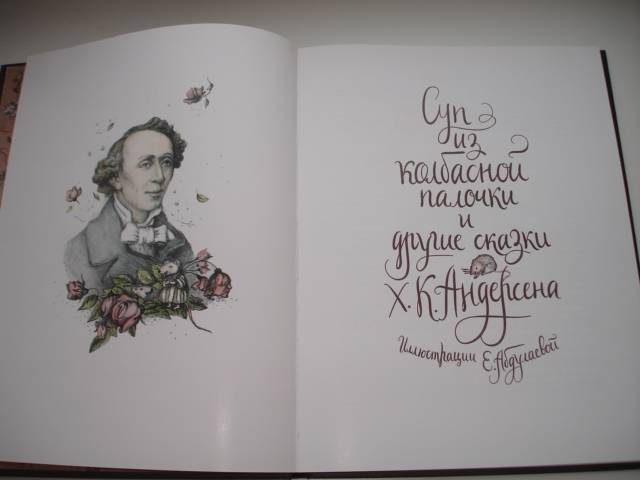 Суп
из
колбасной
палочки
и
другие сказки
Х.К.Андерсена
Иллюстрации Е.Абдулаевой